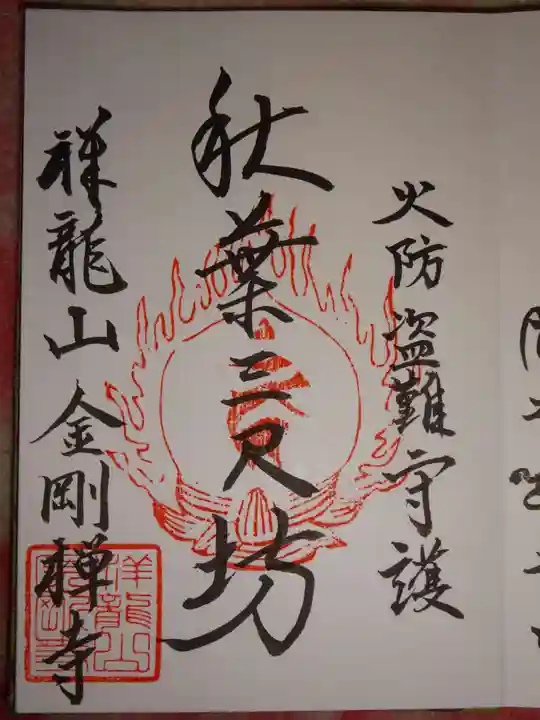 火防盗難守護
秋葉三尺坊
祥龍山金剛禅寺
祥龍山